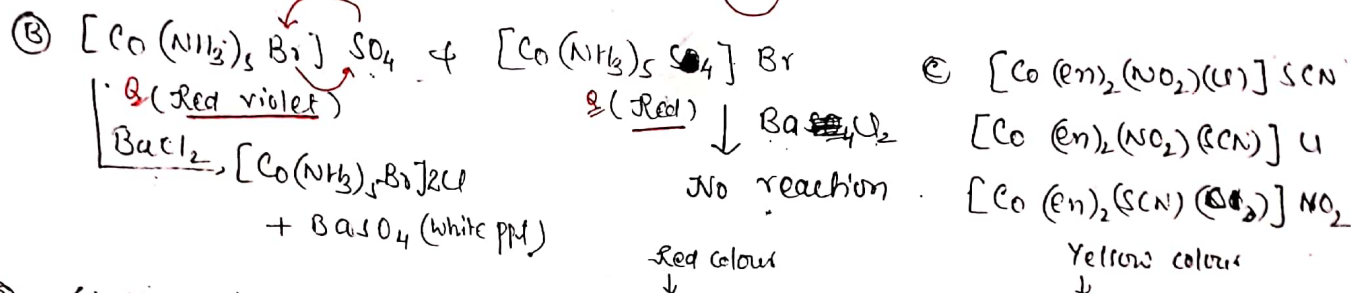 Ⓑ [Co(NH3)5 Br] SO4 & [Co(NH3)5 SO4] Br
Q(Red violet)
BaCl2, [Co(NH3)5Br]2Cl
+ BaSO4 (White ppt)
Q(Red) ↓ Ba Cl2
No reaction.
Red Colour
↓
Ⓒ [Co(en)2(NO2)(Cl)] SCN
[Co(en)2(NO2)(SCN)] Cl
[Co(en)2(SCN)()] NO2
Yellow colour
↓